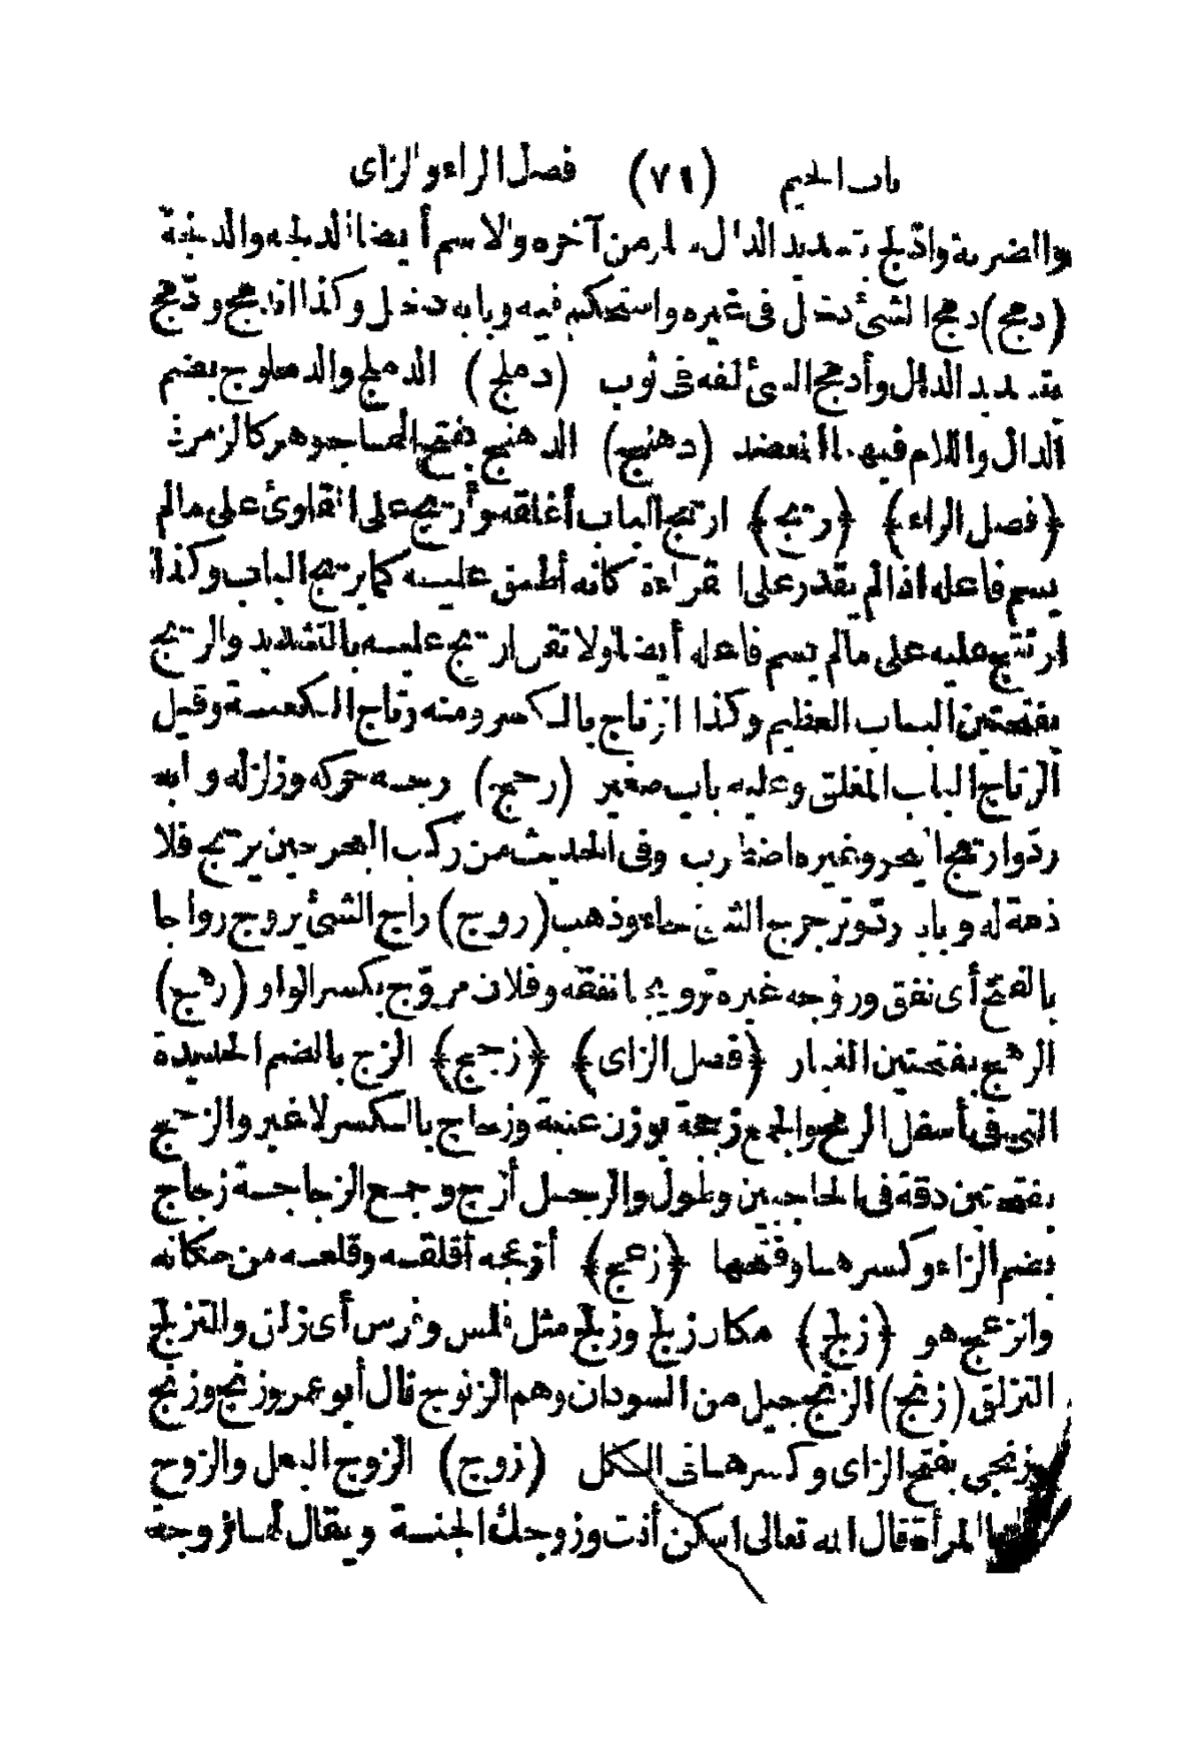 باب الجيم (٧٩) فصل الراء والزاى
والضربة وادّلج بتشديد الدال سار من آخره والاسم أيضا الدلجة والدلجة
(دمج) دمج الشئ دخل فى غيره واستحكم فيه وبابه دخل وكذا اندمج وادّمج
بتشديد الدال وأدمج الشئ لفه فى ثوب (دملج) الدملج والدملوج بضم
الدال واللام فيهما المعضد (دهنج) الدهنج بفتح الهاء جوهر كالزمرد
﴿فصل الراء﴾ ﴿رتج﴾ ارتج الباب أغلقه وأرتج على القارئ على مالم
يسم فاعله اذا لم يقدر على القراءة كأنه أطبق عليه كما يرتج الباب وكذا
ارتتج عليه على مالم يسم فاعله أيضا ولا تقل ارتج عليه بالتشديد والرتج
بفتحتين الباب العظيم وكذا الرتاج بالكسر ومنه رتاج الكعبة وقيل
الرتاج الباب المغلق وعليه باب صغير (رجج) رجه حركه وزلزله وبابه
ردّ وارتج البحر وغيره اضطرب وفى الحديث من ركب البحر حين يرتج فلا
ذمة له وبابه ردّ وترجرج الشئ جاء وذهب (روج) راج الشئ يروج رواجا
بالفتح أى نفق وروّجه غيره ترويجا نفقه وفلان مروّج بكسر الواو (رهج)
الرهج بفتحتين الغبار ﴿فصل الزاى﴾ ﴿زجج﴾ الزج بالضم الحديدة
التى فى أسفل الرمح والجمع زججة بوزن عنبة وزجاج بالكسر لا غير والزجج
بفتحتين دقة فى الحاجبين وطول والرجل أزج وجمع الزجاجة زجاج
بضم الزاء وكسرها وفتحها ﴿زعج﴾ أزعجه أقلقه وقلعه من مكانه
وانزعج هو ﴿زلج﴾ مكان زلج وزلج مثل فلس وفرس أى زلق والتزلج
التزلق (زنج) الزنج جيل من السودان وهم الزنوج قال أبو عمرو زنج وزنج
وزنجى بفتح الزاى وكسرها فى الكل (زوج) الزوج البعل والزوج
أيضا المرأة قال الله تعالى اسكن أنت وزوجك الجنة ويقال لها زوجة